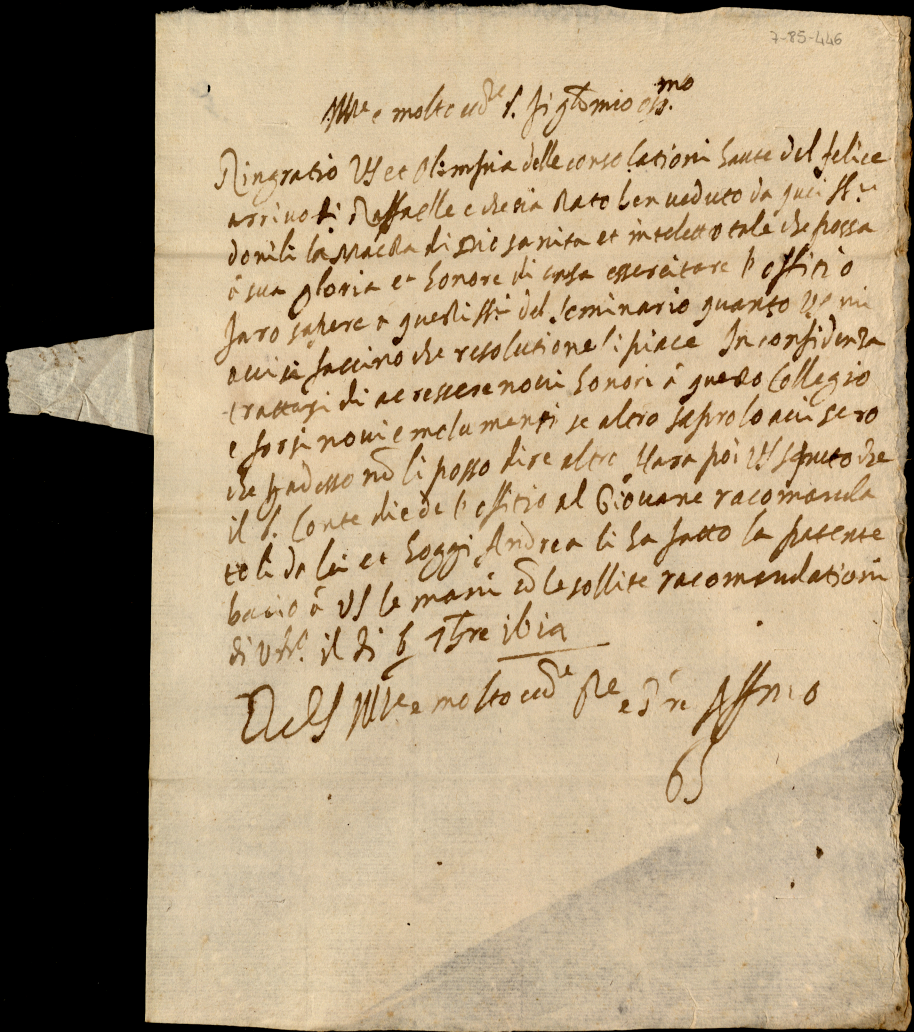 7-85-446
Ill.re e molto ecc.te S. figlo mio oss.mo
Ringratio VS et Olimpia delle consolationi haute del felice
arrivo di Raffaelle e che sia stato ben veduto da quei SS.ri
donili la Maestà di Dio sanita et intelletto tale che possa
à sua gloria et honore di casa essercitare l'offitio
faro sapere a questi SS.ri del Seminario quanto VS mi
avisa faccino che resolutione li piace In confidenza
trattasi di accressere novi honori à questo Collegio
e forsi novi emolumenti se altro saprolo avisero
che p adesso nō li posso dire altro Hara poi VS saputo che
il S. Conte diede l'offitio al Giovane racomanda
toli da lei et hoggi Andrea li ha fatto la patente
bacio à VS le mani cō le sollite racomandationi
di il di 6
Di VS Ill.re e molto ecc.te P.re